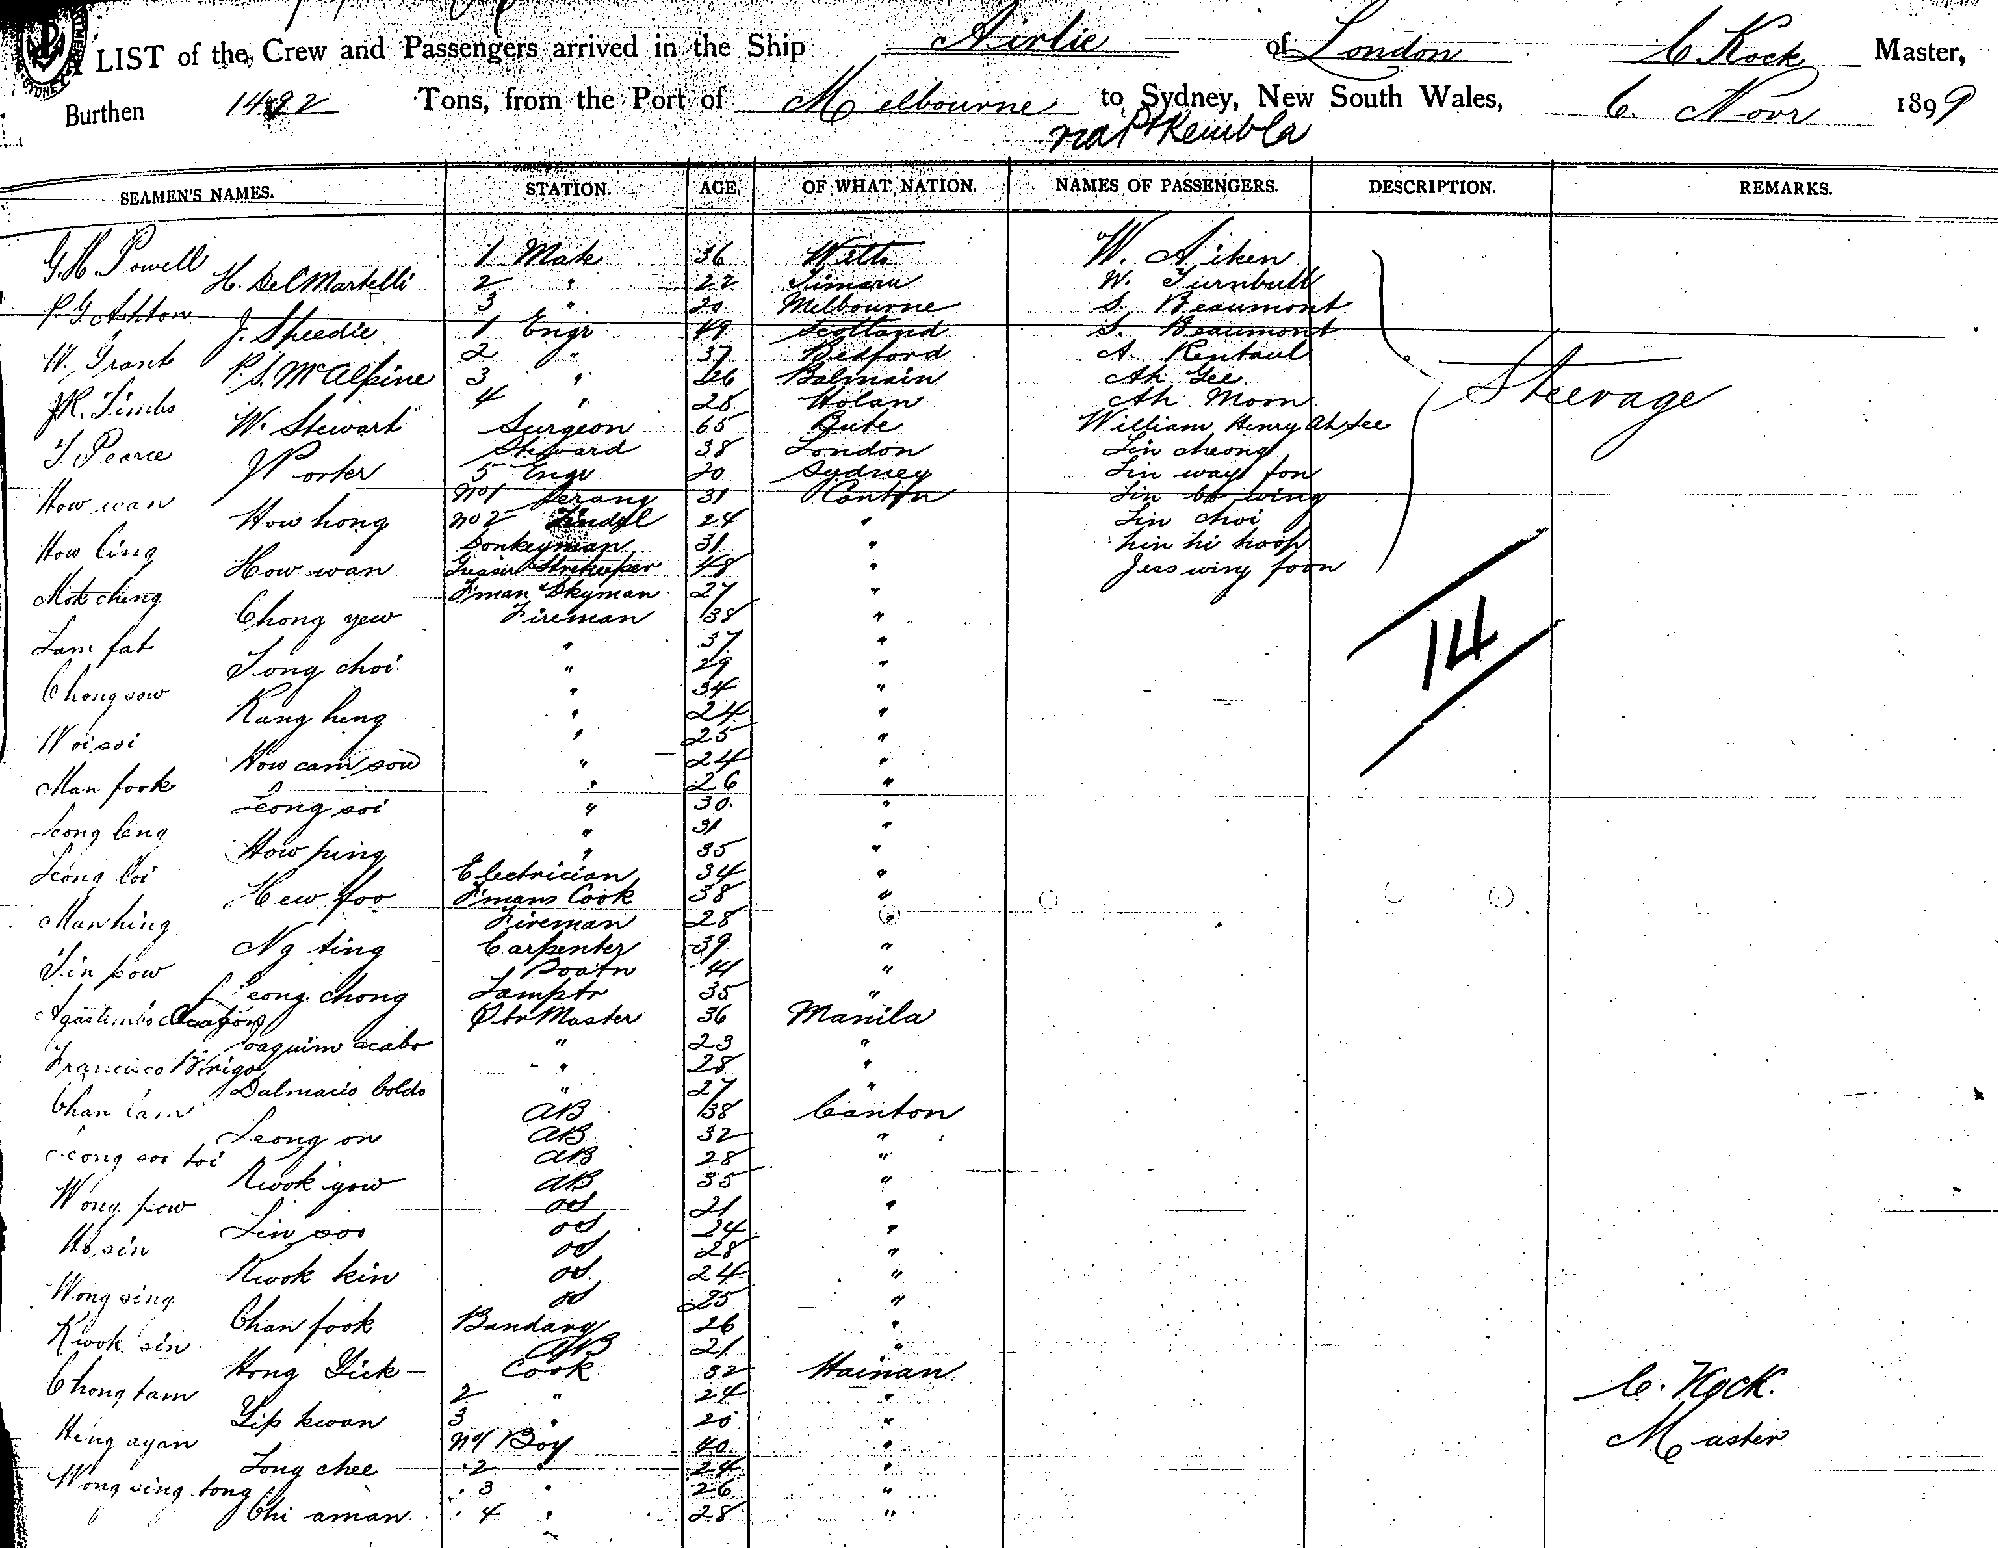 LIST of the Crew and Passengers arrived in the Ship Airlie of London C Kock Master,
Burthen 1492 Tons, from the Port of Melbourne to Sydney, New South Wales, 6. Novr 1899
via Pt Kembla
SEAMEN'S NAMES. STATION. AGE. OF WHAT NATION. NAMES OF PASSENGERS. DESCRIPTION. REMARKS.
G. H. Powell 1 Mate 36 Wilts W. Aiken
H. Del Martelli 2 " 22 Timaru W. Turnbull
P. G. Ashton 3 " 20 Melbourne S. Beaumont
J. Speedie 1 Engr 49 Scotland S. Beaumont
W. Grant 2 " 37 Bedford A. Rentaul
P. S. McAlpine 3 " 26 Balmain Ah Gee
J. R. Timbs 4 " 28 Ah Moon
W. Stewart Surgeon 65 Bute William Henry Ah Lee
T. Pearce Steward 38 London Lin cheong
J Porter 5 Engr 20 Sydney Lin way fon
How wan No 1 Serang 31 Canton Lin bo wing
How hong No 2 Tindel 24 " Lin choi
How ling Donkeyman 31 " Lin hi hoop
How wan Storekeeper 48 " Jess wing foon
Mok ching F'man Dkyman 27 "
Chong yew Fireman 38 "
Lam fat " 37 "
Tong choi " 29 "
Chong sow " 34 "
Kang heng " 24 "
Woi soi " 25 "
How cam sow " 24 "
Man fook " 26 "
Leong soi " 30 "
Leong leng " 31 "
How ping " 35 "
Leong loi Electrician 34 "
Hew foo F'mans Cook 38 "
Man hing Fireman 28 "
Ng ting Carpenter 39 "
Tin pow Boatn 41 "
Leong chong Lamptr 35 "
Qtr Master 36 Manila
Joaquim acabo " 23 "
Francisco " 28 "
Dalmacio boldo " 27 "
Chan lam AB 38 Canton
Leong on AB 32 "
Leong soi toi AB 28 "
Kwok yow AB 35 "
Wong pow OS 21 "
Lin soo OS 24 "
Ho sin OS 28 "
Kwok kin OS 24 "
Wong sing OS 25 "
Chan fook Bandary 26 "
Kwok sin AB 21 "
Hong Yick Cook 32 Hainan
Chong tam 2 " 24 "
Yip kwan 3 " 25 "
Hing ayan No 1 Boy 40 "
Tong chee 2 " 24 "
Wong sing tong 3 " 26 "
Chi aman 4 " 28 "
Steerage
14
C. Kock.
Master